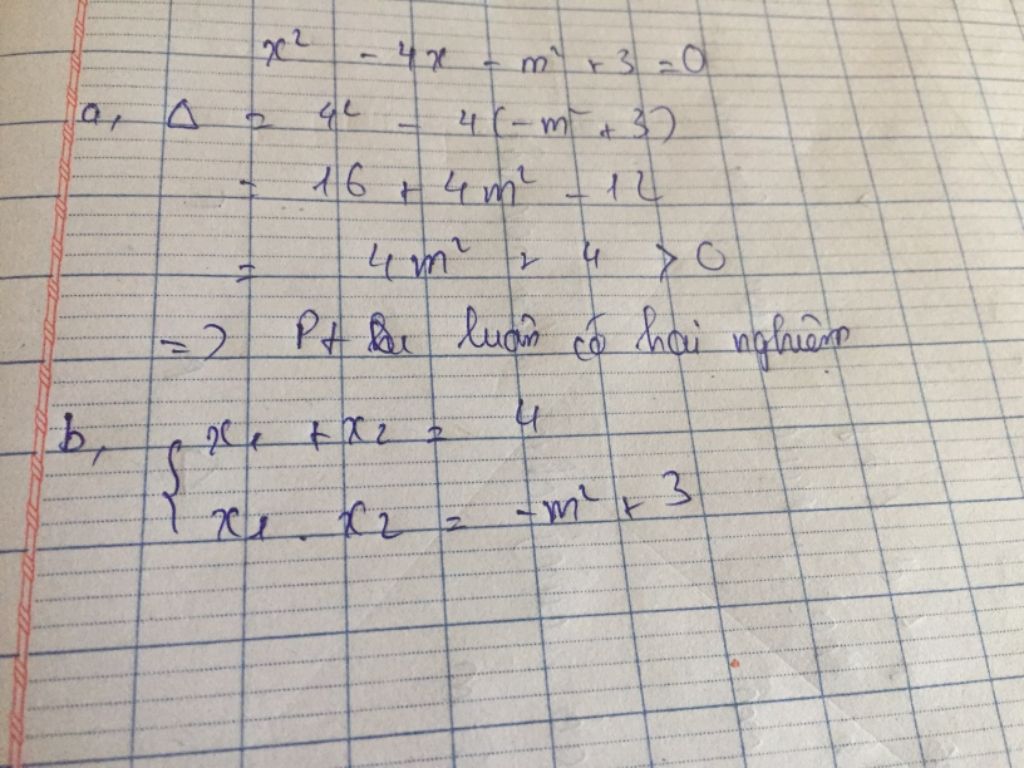 x² - 4x - m² + 3 = 0
a, Δ = 4² - 4(-m² + 3)
= 16 + 4m² - 12
= 4m² + 4 > 0
=> Pt luôn có hai nghiệm
b, { x₁ + x₂ = 4
x₁ . x₂ = -m² + 3